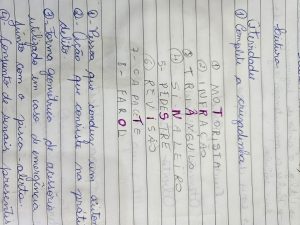 Atividades
① Complete a cruzadinha:
① MOTORISTA
② INFRAÇÃO
③ TRIÂNGULO
④ SINALEIRO
5- PEDESTRE
6 REVISÃO
7-
8- FAROL
①- Pessoa que conduz um
②- Ação que na
delito
③- forma geométrica de acessório
utilizado em caso de emergência
junto com o pisca-alerta.
④- Conjunto de sinais presentes